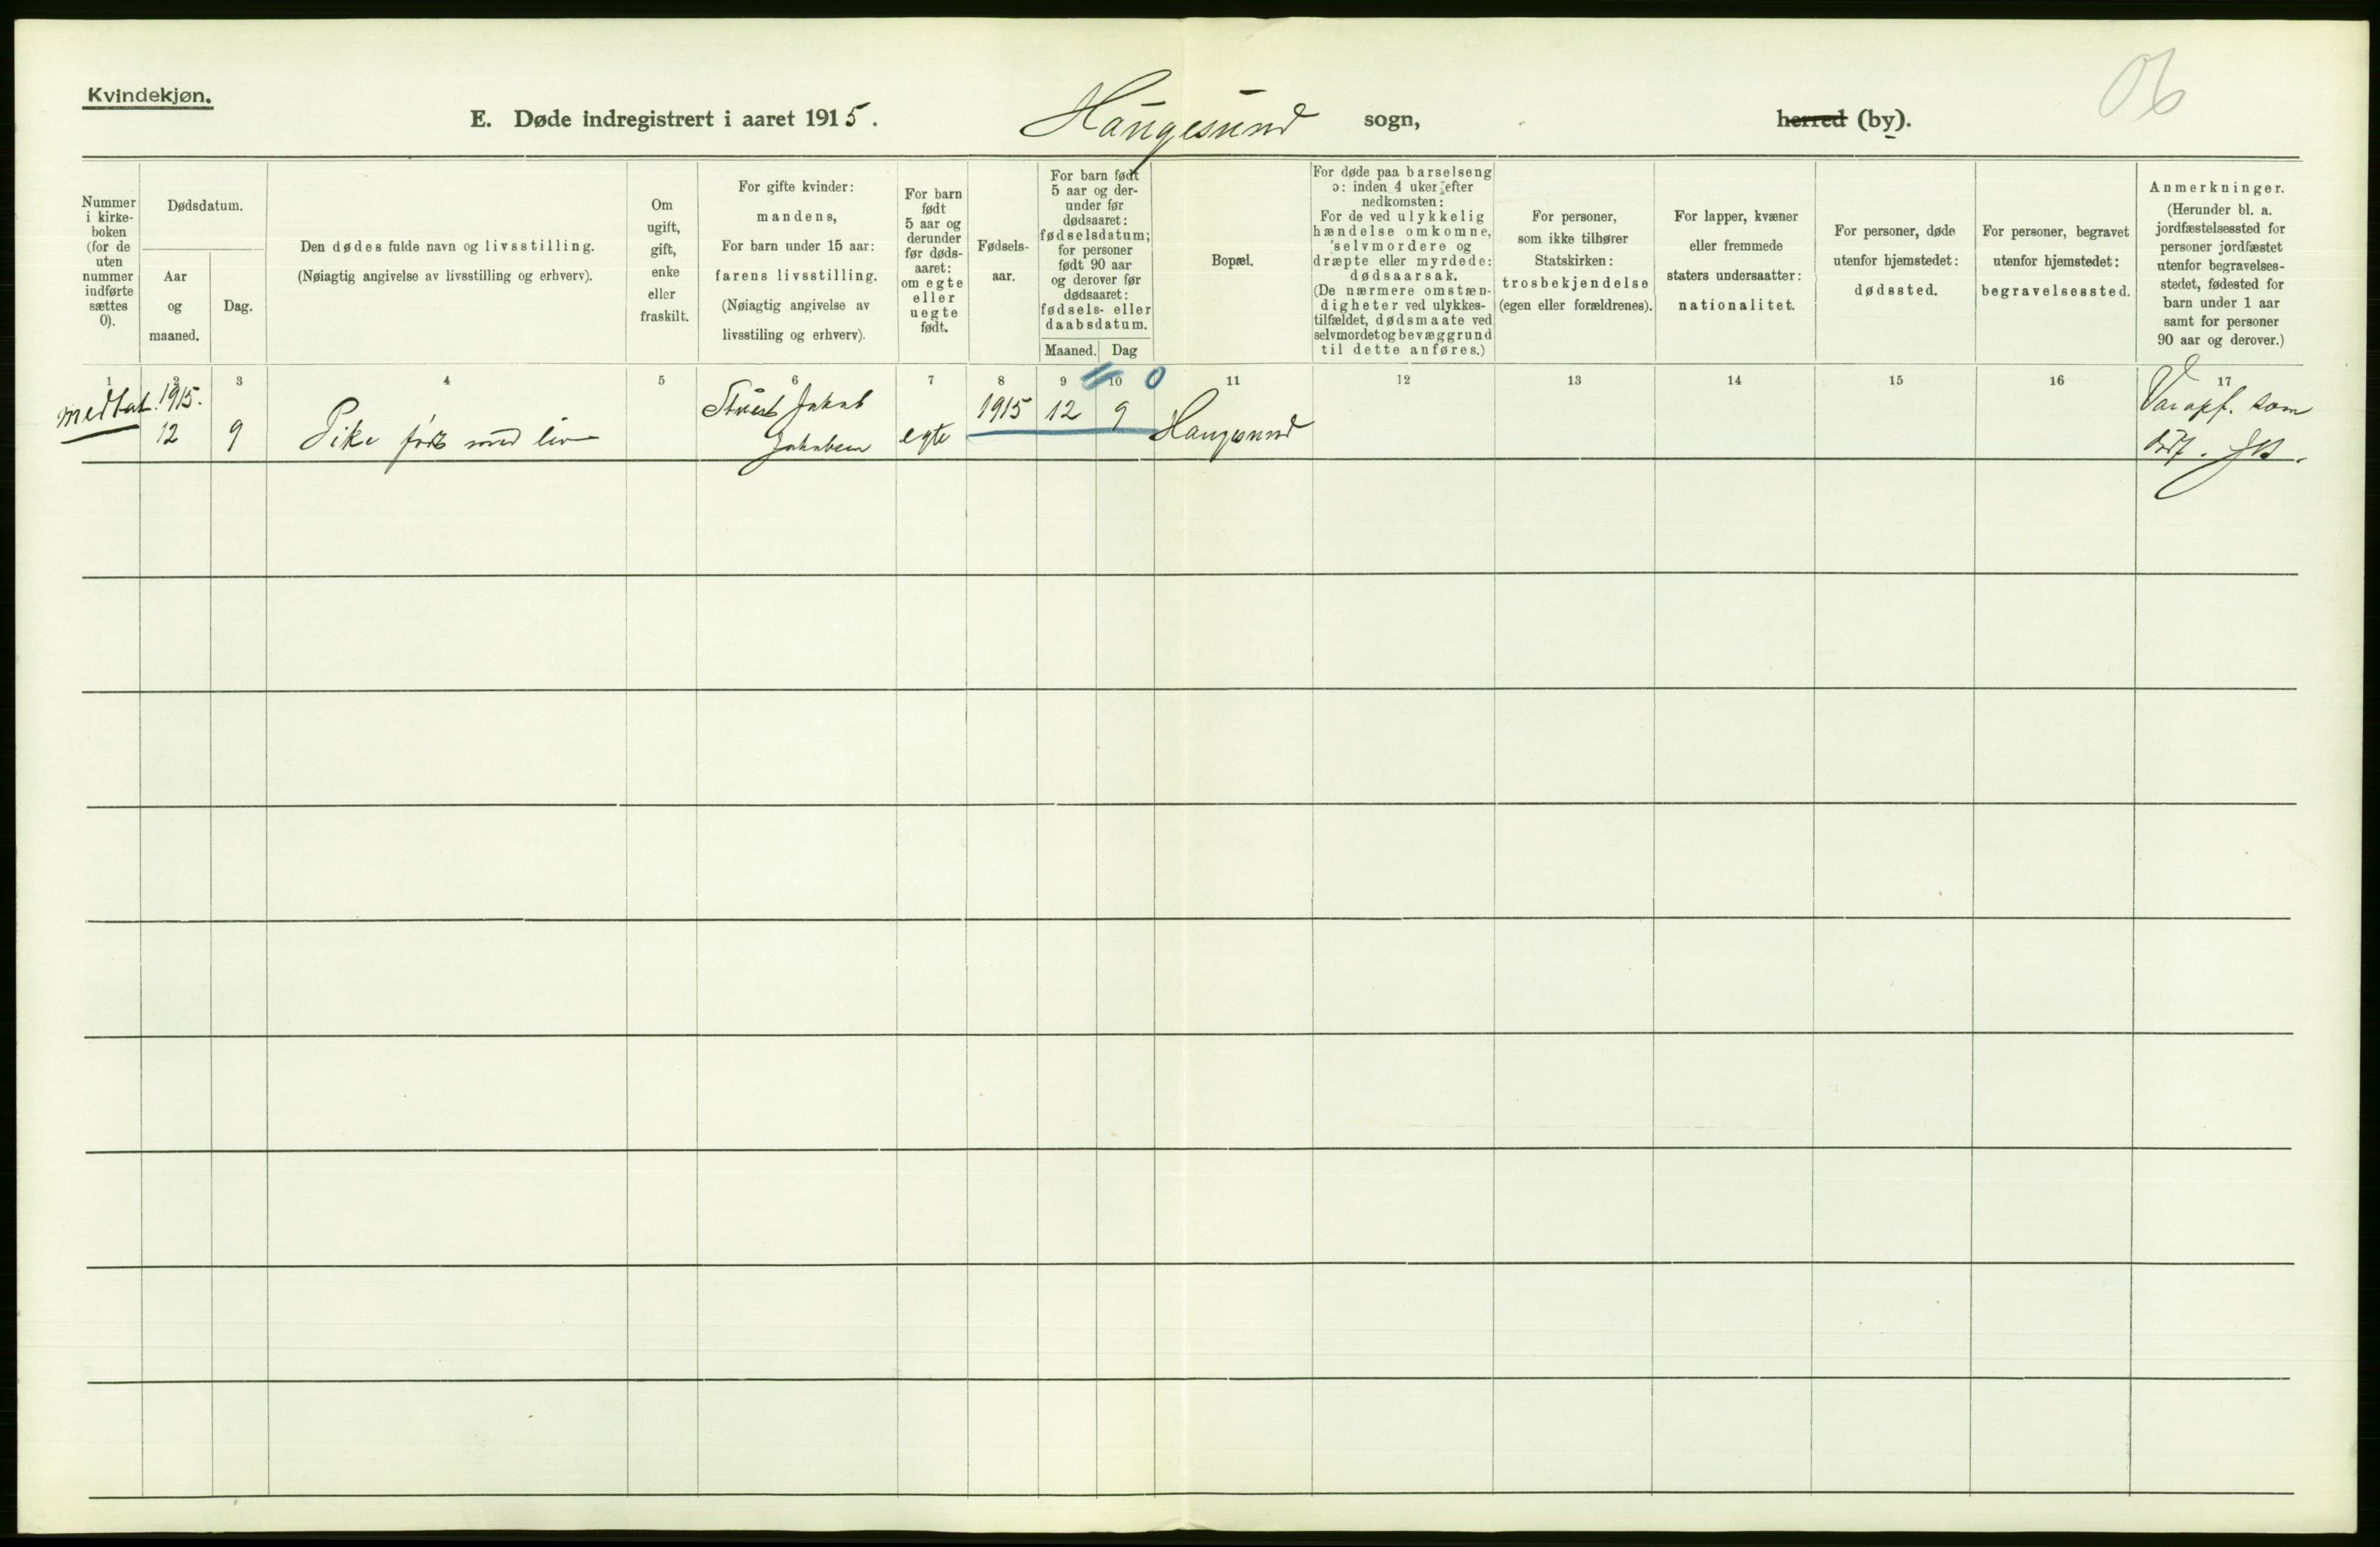 Kvindekjøn.
06
E. Døde indregistrert i aaret 1915. Haugesund sogn, herred (by).
Nummer
i kirke-
boken
(for de
uten
nummer
indførte
sættes
0).
Dødsdatum.
Aar
og
maaned.
Dag.
Den dødes fulde navn og livsstilling.
(Nøiagtig angivelse av livsstilling og erhverv).
Om
ugift,
gift,
enke
eller
fraskilt.
For gifte kvinder:
mandens,
For barn under 15 aar:
farens livsstilling.
(Nøiagtig angivelse av
livsstiling og erhverv).
For barn
født
5 aar og
derunder
før døds-
aaret:
om egte
eller
uegte
født.
Fødsels-
aar.
For barn født
5 aar og der-
under før
dødsaaret:
fødselsdatum;
for personer
født 90 aar
og derover før
dødsaaret:
fødsels- eller
daabsdatum.
Maaned. Dag
Bopæl.
For døde paa barselseng
ɔ: inden 4 uker efter
nedkomsten:
For de ved ulykkelig
hændelse omkomne,
selvmordere og
dræpte eller myrdede:
dødsaarsak.
(De nærmere omstæn-
digheter ved ulykkes-
tilfældet, dødsmaate ved
selvmordet og bevæggrund
til dette anføres.)
For personer,
som ikke tilhører
Statskirken:
trosbekjendelse
(egen eller forældrenes).
For lapper, kvæner
eller fremmede
staters undersaatter:
nationalitet.
For personer, døde
utenfor hjemstedet:
dødssted.
For personer, begravet
utenfor hjemstedet:
begravelsessted.
Anmerkninger.
(Herunder bl. a.
jordfæstelsessted for
personer jordfæstet
utenfor begravelses-
stedet, fødested for
barn under 1 aar
samt for personer
90 aar og derover.)
1 2 3 4 5 6 7 8 9 10 0 11 12 13 14 15 16 17
medtat. 1915. Jakob 1915 12 9 Var opf. som
12 9 Pike født med liv Jakobsen egte Haugesund